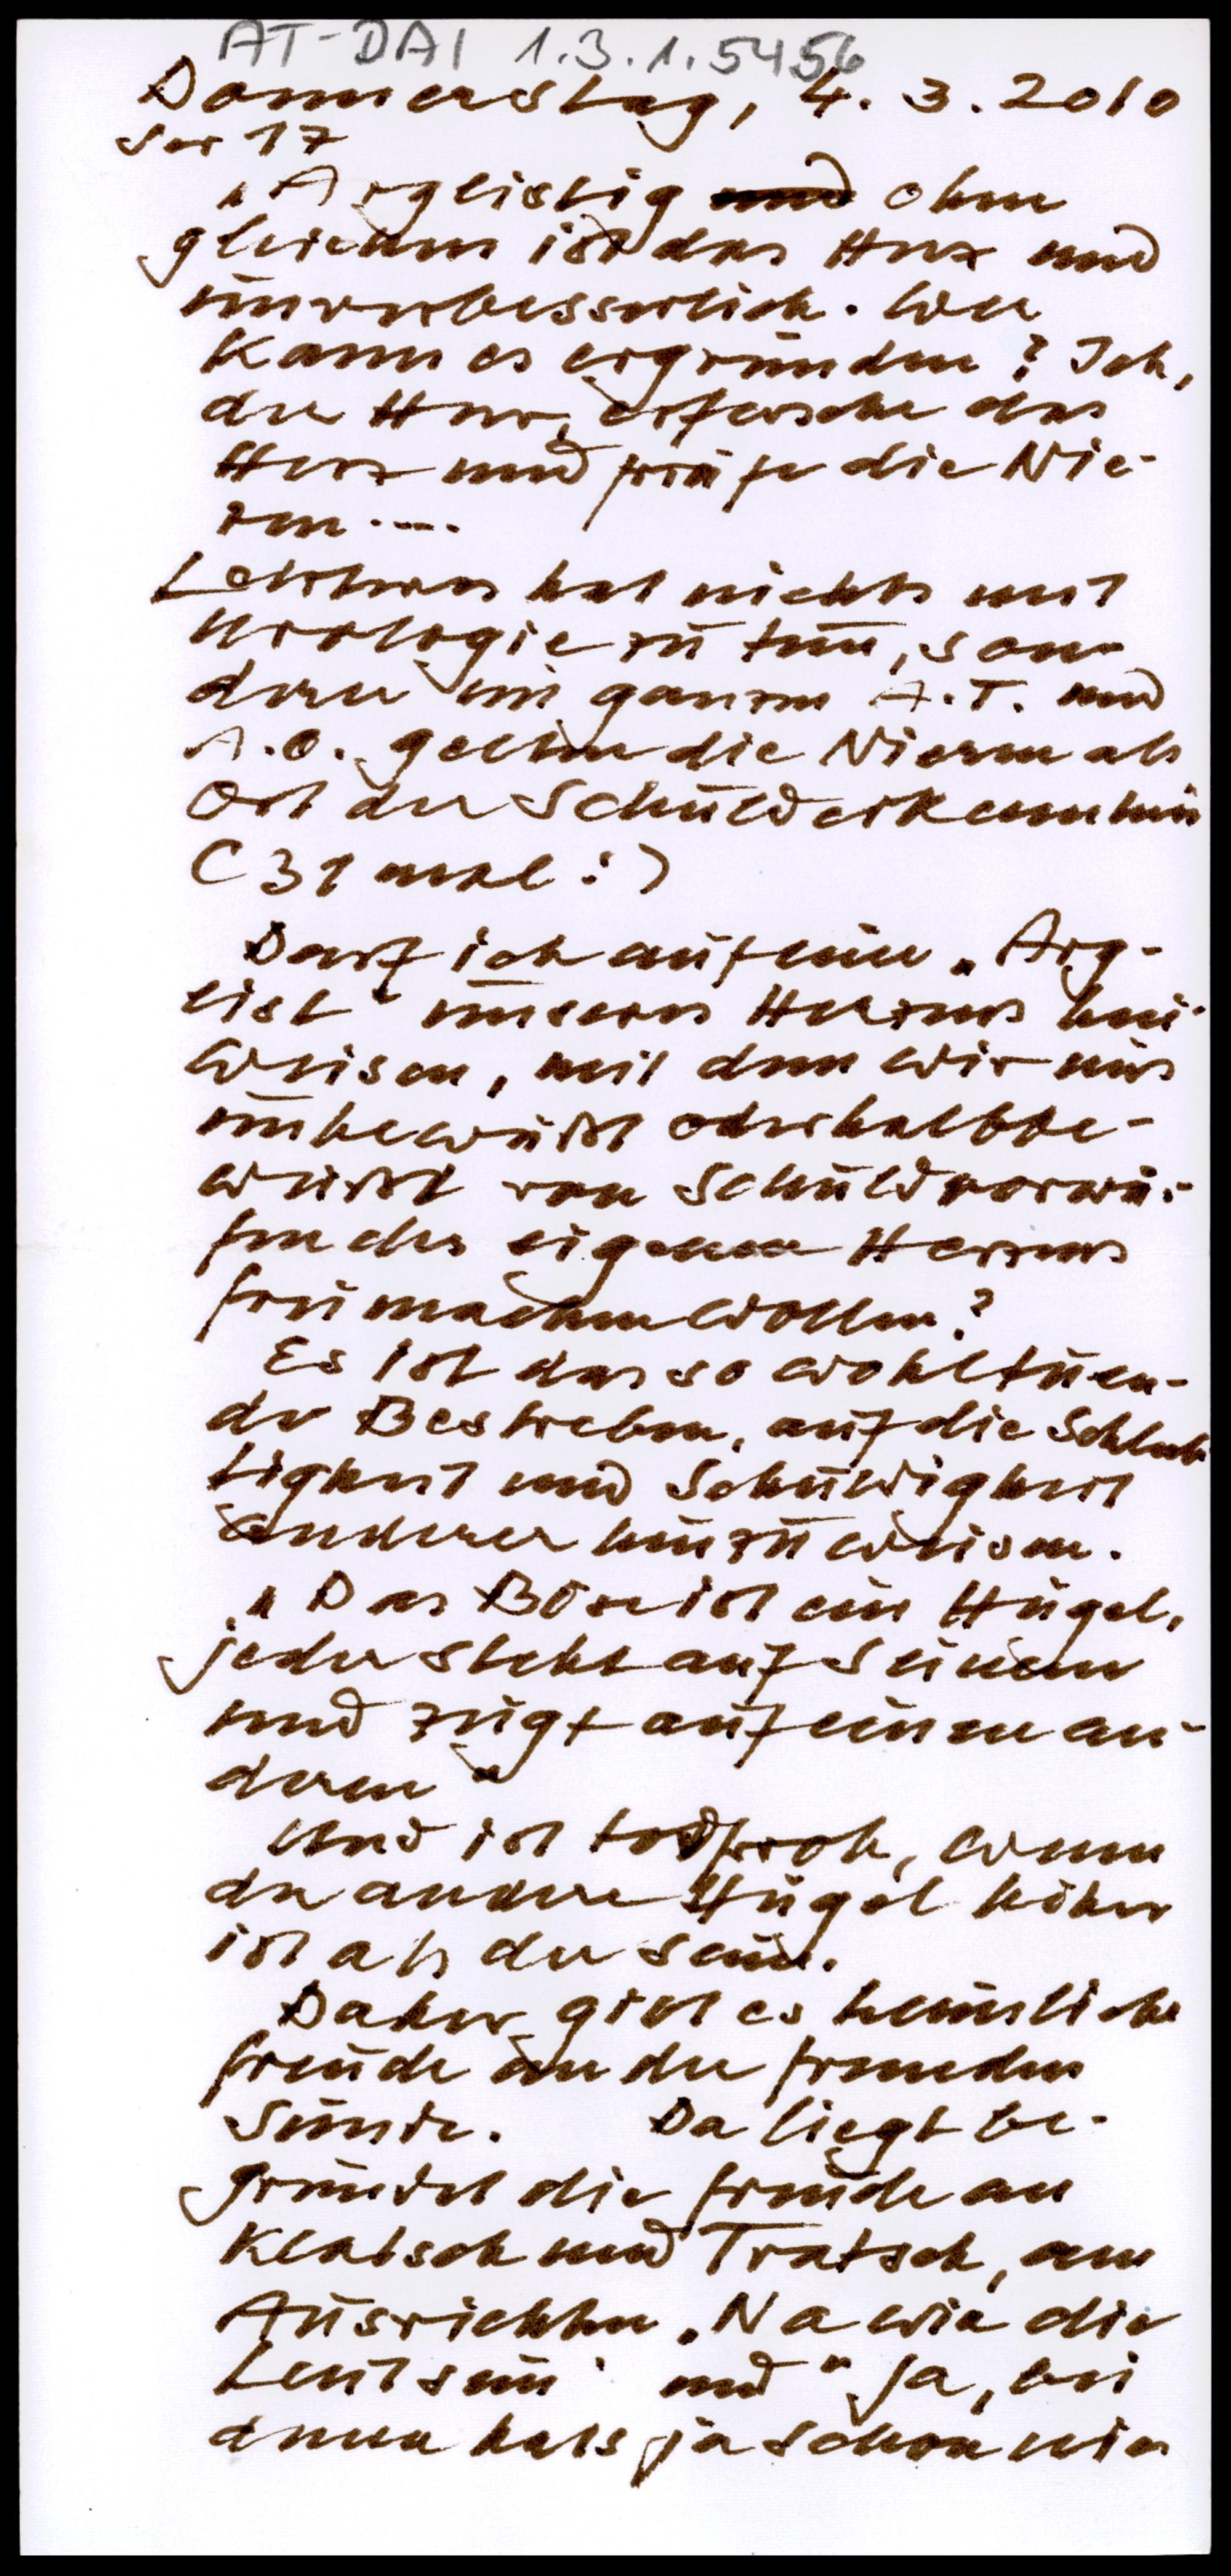 AT-DAI 1.3.1.5456
Donnerstag, 4.3.2010
Jer 17
"Arglistig und ohne
gleichen ist das Herz und
unverbesserlich. Wer
kann es ergründen? Ich,
der Herr, erforsche das
Herz und prüfe die Nie-
ren....
Letzteres hat nichts mit
Urologie zu tun, son-
dern im ganzen A.T. und
A.O. gelten die Nieren als
Ort der Schulderkenntnis
(31 mal:)
Darf ich auf eine "Arg-
list" unseres Herzens hin-
weisen, mit dem wir uns
unbewußt oder halbbe-
wußt von Schuldvorwür-
fen des eigenen Herzens
frei machen wollen?
Es ist das so wohltuen-
de Bestreben, auf die Schlech-
tigkeit und Schuldigkeit
anderer hinzuweisen.
"Das Böse ist ein Hügel,
jeder steht auf seinem
und zeigt auf einen an-
deren"
Und ist todfroh, wenn
der andere Hügel höher
ist als der seine.
Daher gibt es heimliche
Freude an der fremden
Sünde. Da liegt be-
gründet die Freude an
Klatsch und Tratsch, am
Ausrichten "Na wie die
Leut sein" und "Ja, bei
denen hats ja schon wie